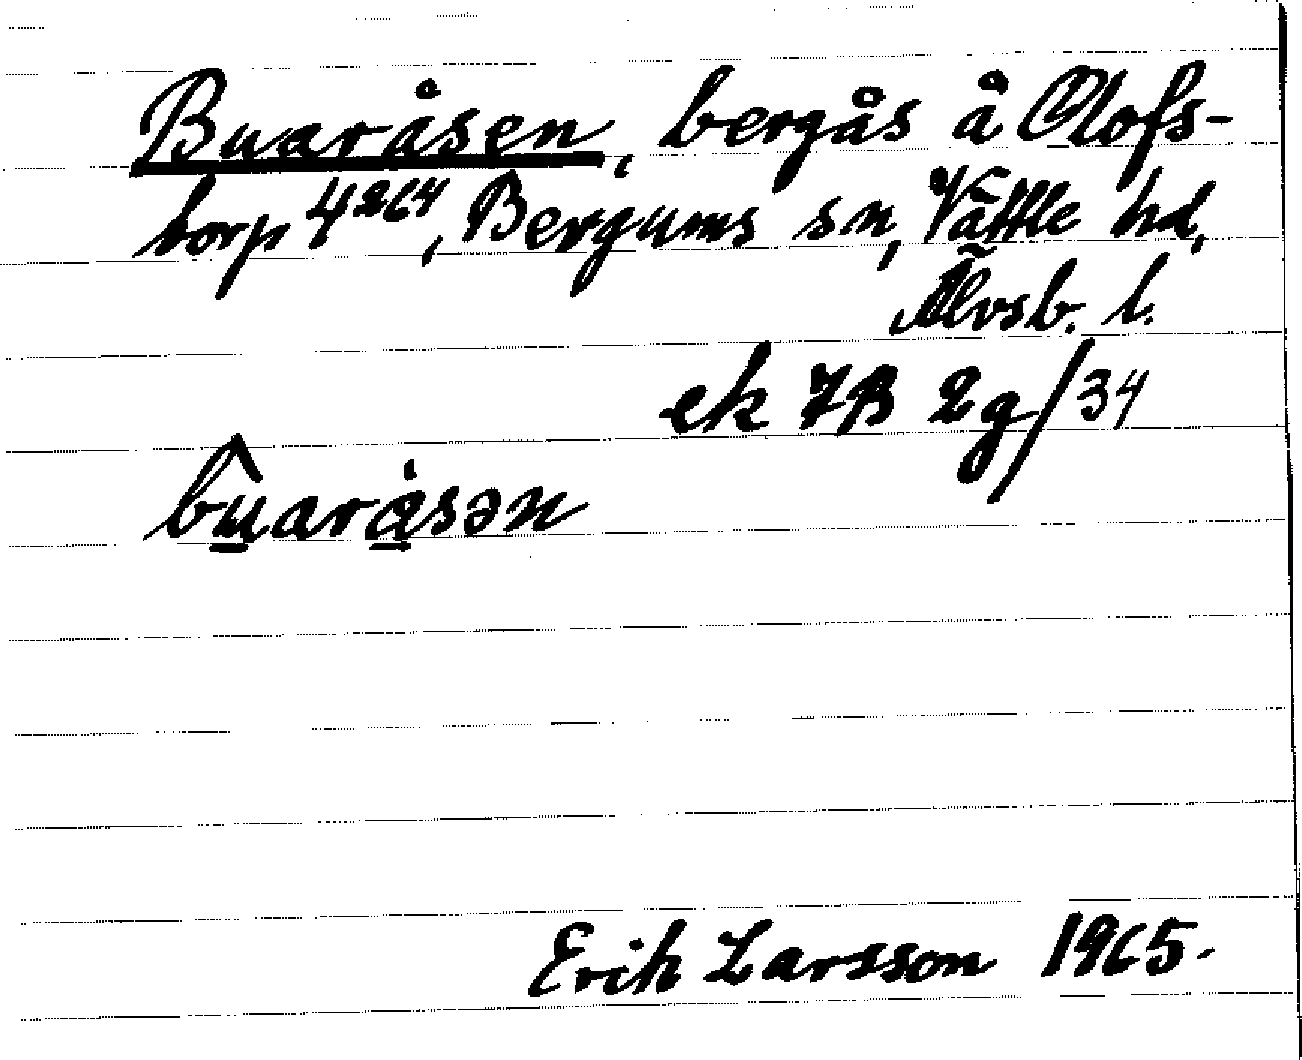 Buaråsen, bergås å Olofs-
torp 4²⁶⁴, Bergums sn, Vättle hd,
Älvsb. l.
ek 7B 2g/34
bu̲arå̲sən
Erik Larsson 1965.